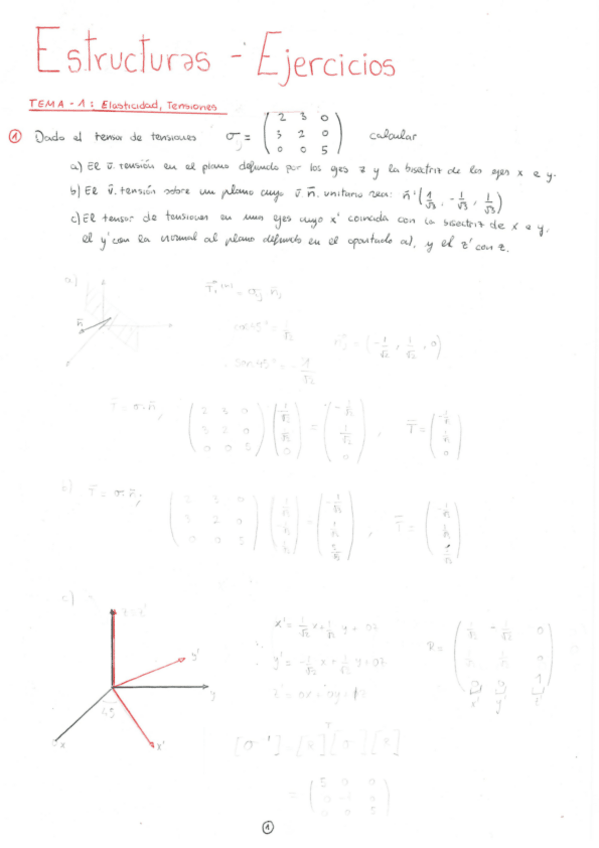 Estructuras - Ejercicios
TEMA - 1: Elasticidad, Tensiones
① Dado el tensor de tensiones σij = ( 2 3 0 calcular
3 2 0
0 0 5 )
a) El v. tensión en el plano definido por los ejes z y la bisectriz de los ejes x e y.
b) El v. tensión sobre un plano cuyo v. n. unitario sea: n (1/√3, -1/√3, 1/√3)
c) El tensor de tensiones en unos ejes cuyo x' coincida con la bisectriz de x e y,
el y' con la normal al plano definido en el apartado a), y el z' con z.
a)
n
cos 45° = 1/√2
- sen 45° = -1/√2
= (-1/√2, 1/√2, 0)
( 2 3 0
3 2 0
0 0 5 )
b)
( 2 3 0
3 2 0
0 0 5 )
c)
z = z'
y'
y
45
x
x'
x' = 1/√2 x + 1/√2 y + 0z
y' = -1/√2 x + 1/√2 y + 0z
z' = 0x + 0y + 1z
R =
x' y' z'
= ( 5 0 0
0 0
0 0 5 )
①